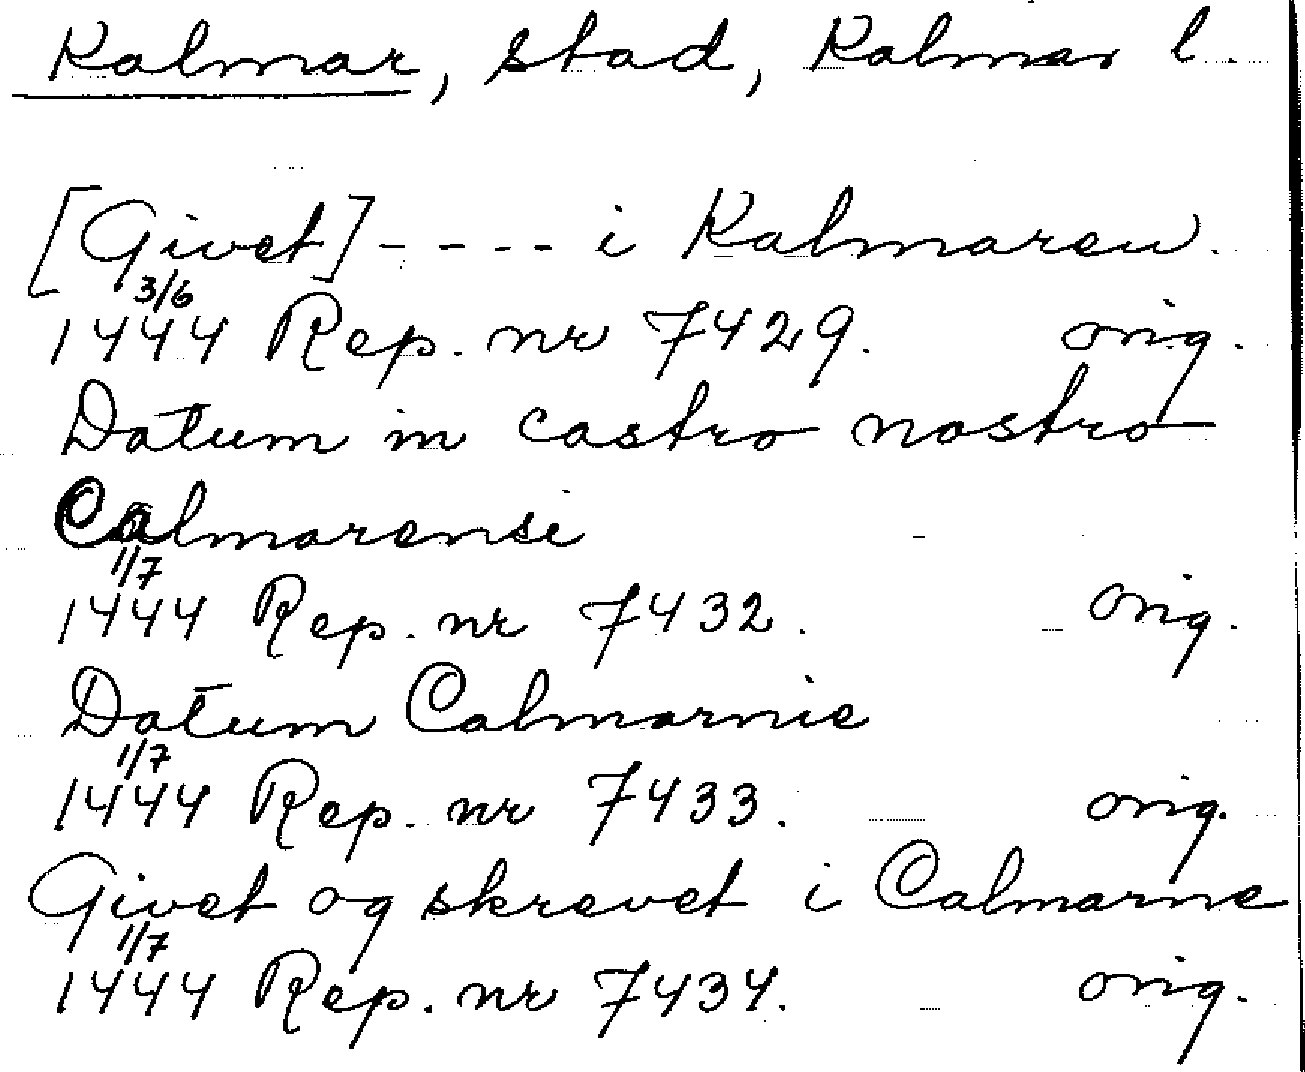 Kalmar, stad, Kalmar l.
[Givet] - - - - i Kalmareu.
3/6
1444 Rep. nr 7429. orig.
Datum in castro nostro
Calmarensi
1/7
1444 Rep. nr 7432. orig.
Datum Calmarnie
1/7
1444 Rep. nr 7433. orig.
Givet og skrevet i Calmarne
1/7
1444 Rep. nr 7434. orig.